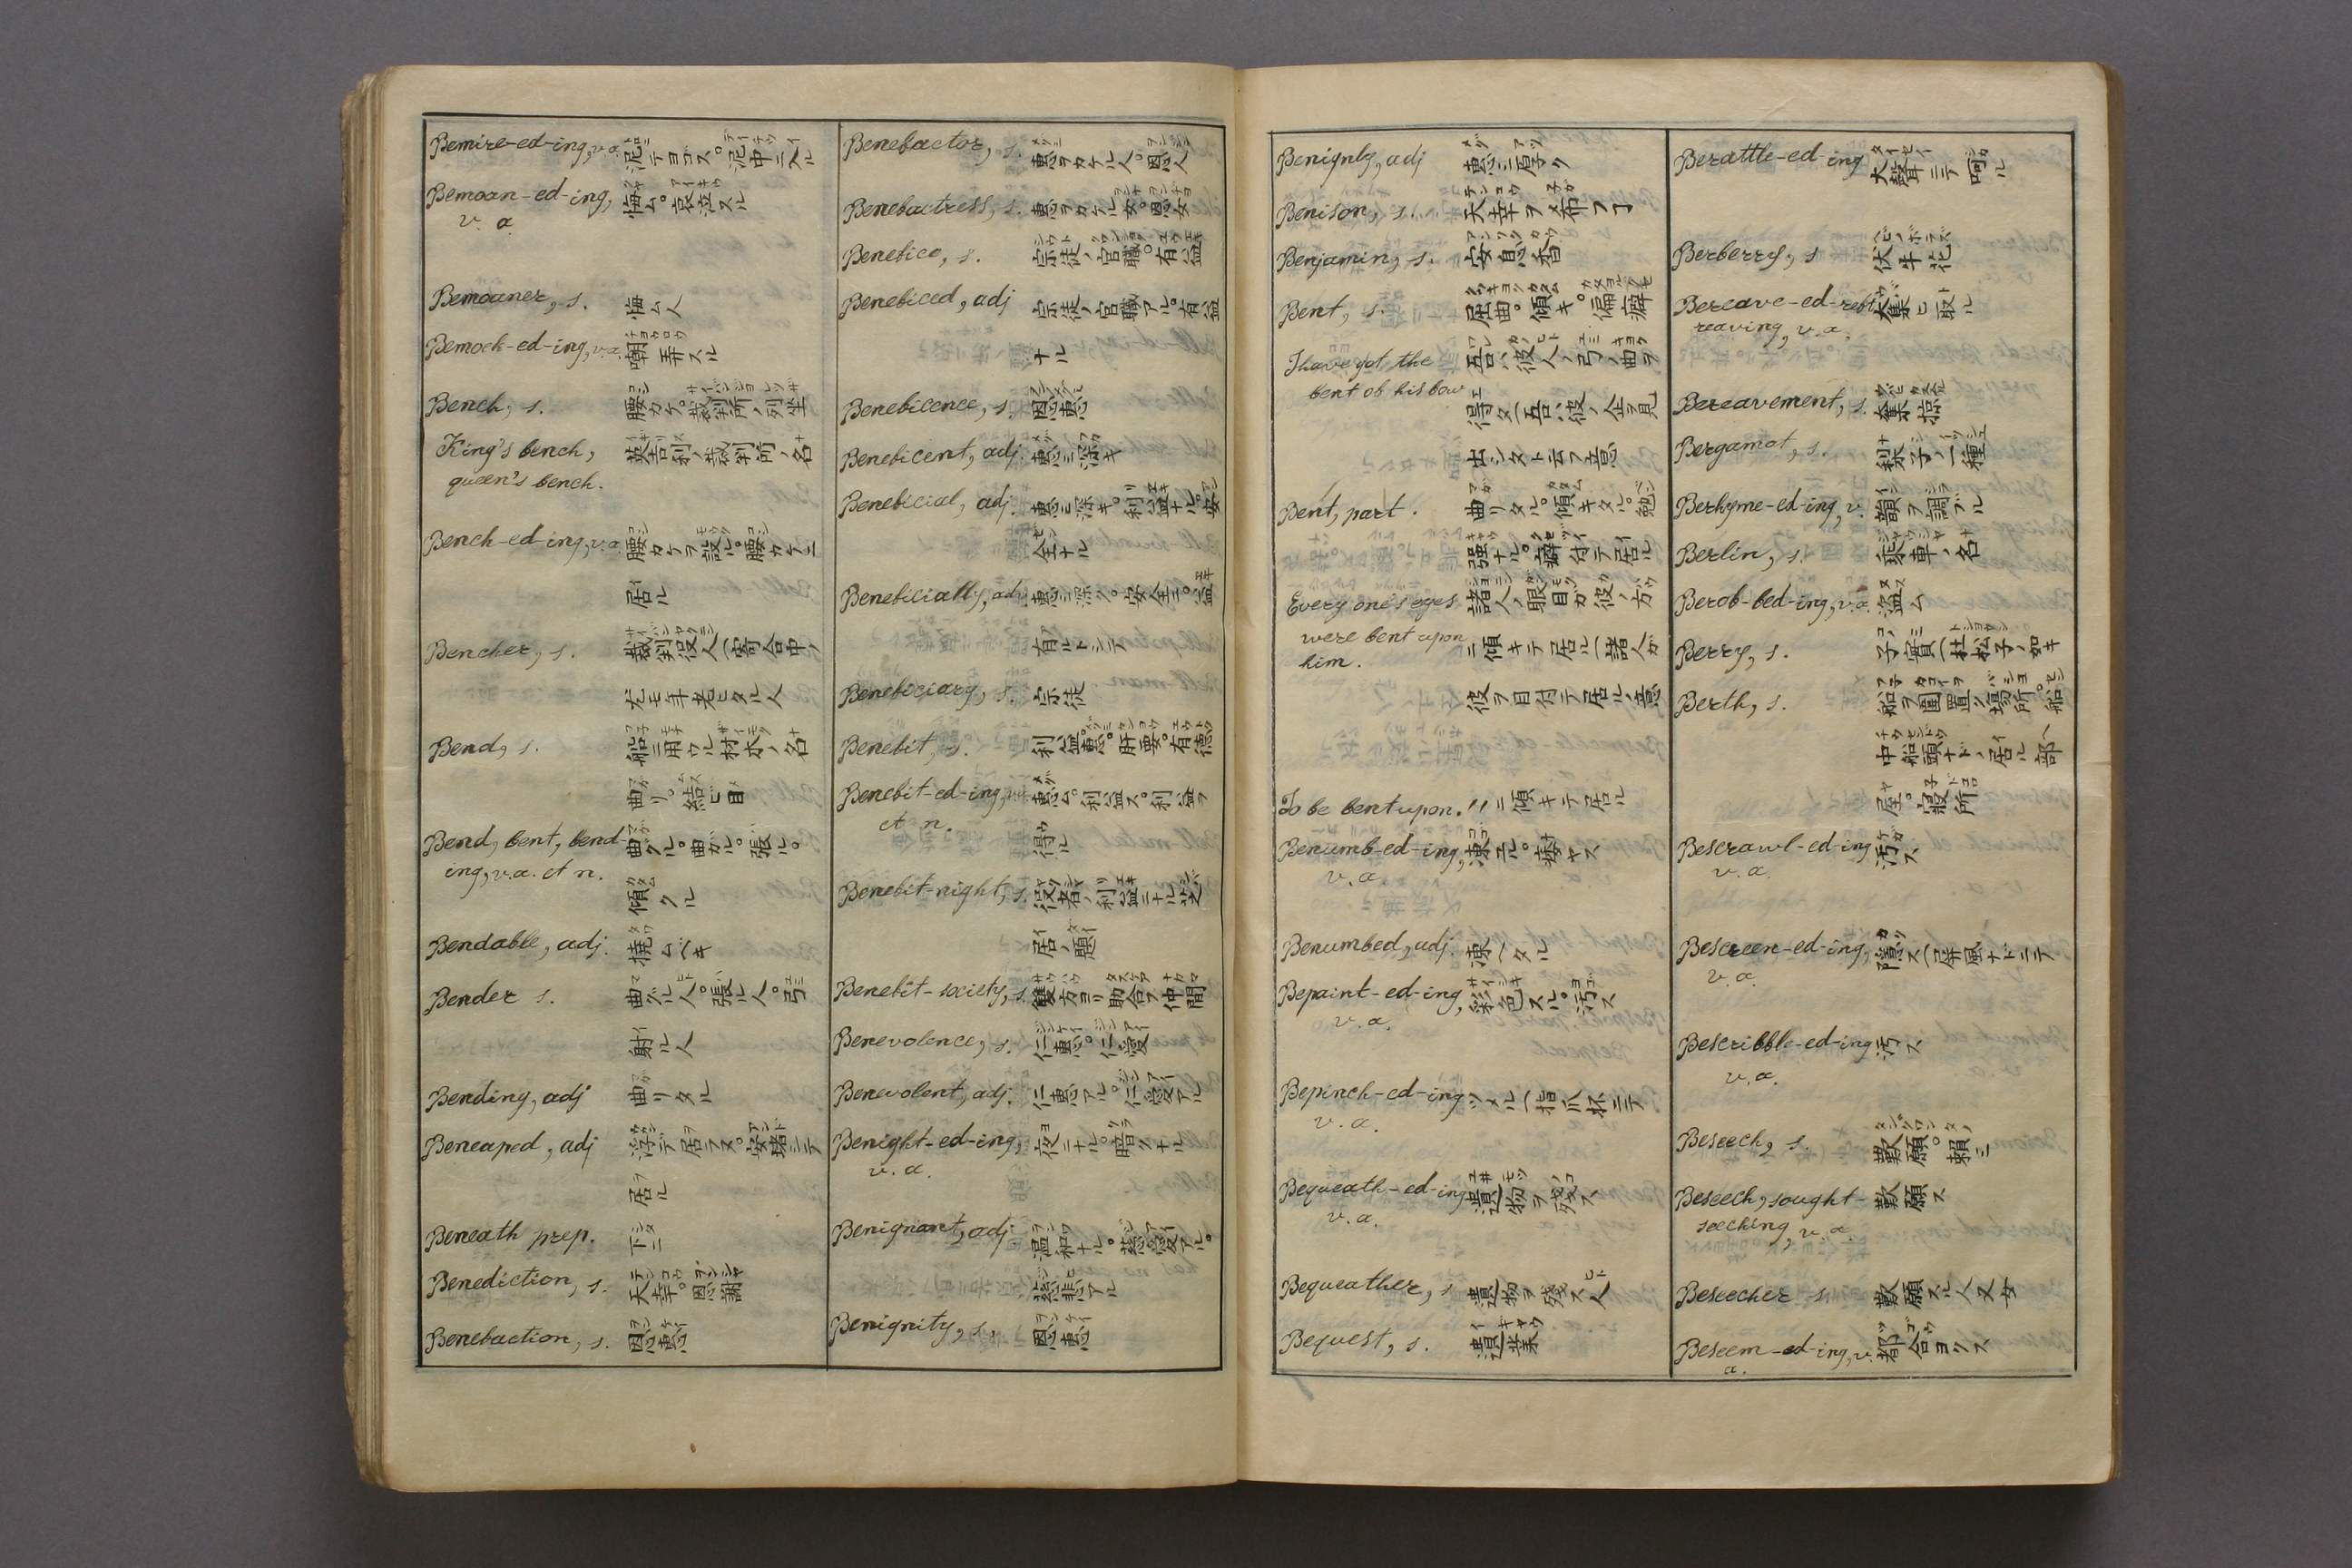 Bemire-ed-ing, v.a. 泥デヨゴス。泥中ニ入ル
Bemoan-ed-ing, 悔ム。哀泣スル
v. a.
Bemoaner, s. 悔ム人
Bemock-ed-ing, v.a. 嘲弄スル
Bench, s. 腰カケ。裁判所ノ列坐
King's bench, 英吉利ノ裁判所ノ名
queen's bench.
Bench-ed-ing, v.a. 腰カケヲ設ル。腰カケニ
居ル
Bencher, s. 裁判役人(寄合中ノ
尤モ年老ヒタル人
Bend, s. 船ニ用ウル材木ノ名
曲リ。結ビ目
Bend, bent, bend- 曲グル。曲ガル。張ル。
ing, v.a. et n.
傾クル
Bendable, adj. 撓ムベキ
Bender s. 曲グル人。張ル人。弓
射ル人
Bending, adj 曲リタル
Beneaped, adj 浮デ居ラヌ。安堵シテ
居ル
Beneath prep. 下ニ
Benediction, s. 天幸。恩謝
Benebaction, s. 恩恵
Benebactor, s. 恵ヲカケル人。恩人
Benebactress, s. 恵ヲカケル女。恩女
Benebice, s. 宗徒ノ官職。有益
Benebiced, adj 宗徒ノ官職アル。有益
ナル
Benebicence, s. 恩恵
Benebicent, adj. 恵ミ深キ
Benebicial, adj. 恵ミ深キ。利益ナル。安
全ナル
Benebicially, adv 恵ミ深ク。安全ニ。益
有ルトシテ
Benebiciary, s. 宗徒
Benebit, s. 利益。恵。肝要。有徳
Benebit-ed-ing, v. 恵ム。利益ス。利益ヲ
et n.
得ル
Benebit-night, s. 役者ノ利益ニナル芝
居ノ題
Benebit-society, s. 雙方ヨリ助合フ仲間
Benevolence, s. 仁恵。仁愛
Benevolent, adj. 仁恵アル。仁愛アル
Benight-ed-ing, 夜ニナル。暗クナル
v. a.
Benignant, adj. 温和ナル。慈愛アル。
慈悲アル
Benignity, s. 恩恵
Benignly, adj 恵ミ厚ク
Benison, s. 天幸ヲ希フヿ
Benjamin, s. 安息香
Bent, s. 屈曲。傾キ。偏癖
I have got the 吾ハ彼人ノ弓ノ曲ヲ
bent ob his bow 得タ(吾ハ彼ノ企ヲ見
出シタト云フ意
Bent, part. 曲リタル。傾キタル。勉
強ナル。癖付テ居ル
Every one's eyes 諸人ノ眼目ガ彼ノ方
were bent upon ニ傾キテ居ル(諸人ガ
him.
彼ヲ目付テ居ル意
To be bent upon. 〃ニ傾キテ居ル
Benumb-ed-ing, 凍エル。痿ヤス
v. a.
Benumbed, adj. 凍ヘタル
Bepaint-ed-ing, 彩色スル。汚ス
v. a.
Bepinch-ed-ing ツメル(指爪杯ニテ
v. a.
Bequeath-ed-ing 遺物ヲ殘ス
v. a.
Bequeather, s 遺物ヲ殘ス人
Bequest, s. 遺業
Berattle-ed-ing 大聲ニテ呵ル
Berberry, s 伏牛花
Bereave-ed-rebt 奪ヒ取ル
reaving, v. a.
Bereavement, s. 奪掠
Bergamot, s. 梨子ノ一種
Berhyme-ed-ing, v. 韻ヲ調ブル
Berlin, s. 乗車ノ名
Berob-bed-ing, v.a. 盗ム
Berry, s. 子實(杜松子ノ如キ
Berth, s. 船ヲ圍置ク場所。船
中船頭ナドノ居ル部
屋。寢所
Bescrawl-ed-ing 汚ス
v. a.
Bescreen-ed-ing, 隱ス(屏風ナドニテ
v. a.
Bescribble-ed-ing 汚ス
v. a.
Beseech, s. 歎願。頼ミ
Beseech, sought- 歎願ス
seeching, v. a.
Beseecher s. 歎願スル人又女
Beseem-ed-ing, v. 都合ヨクス
a.